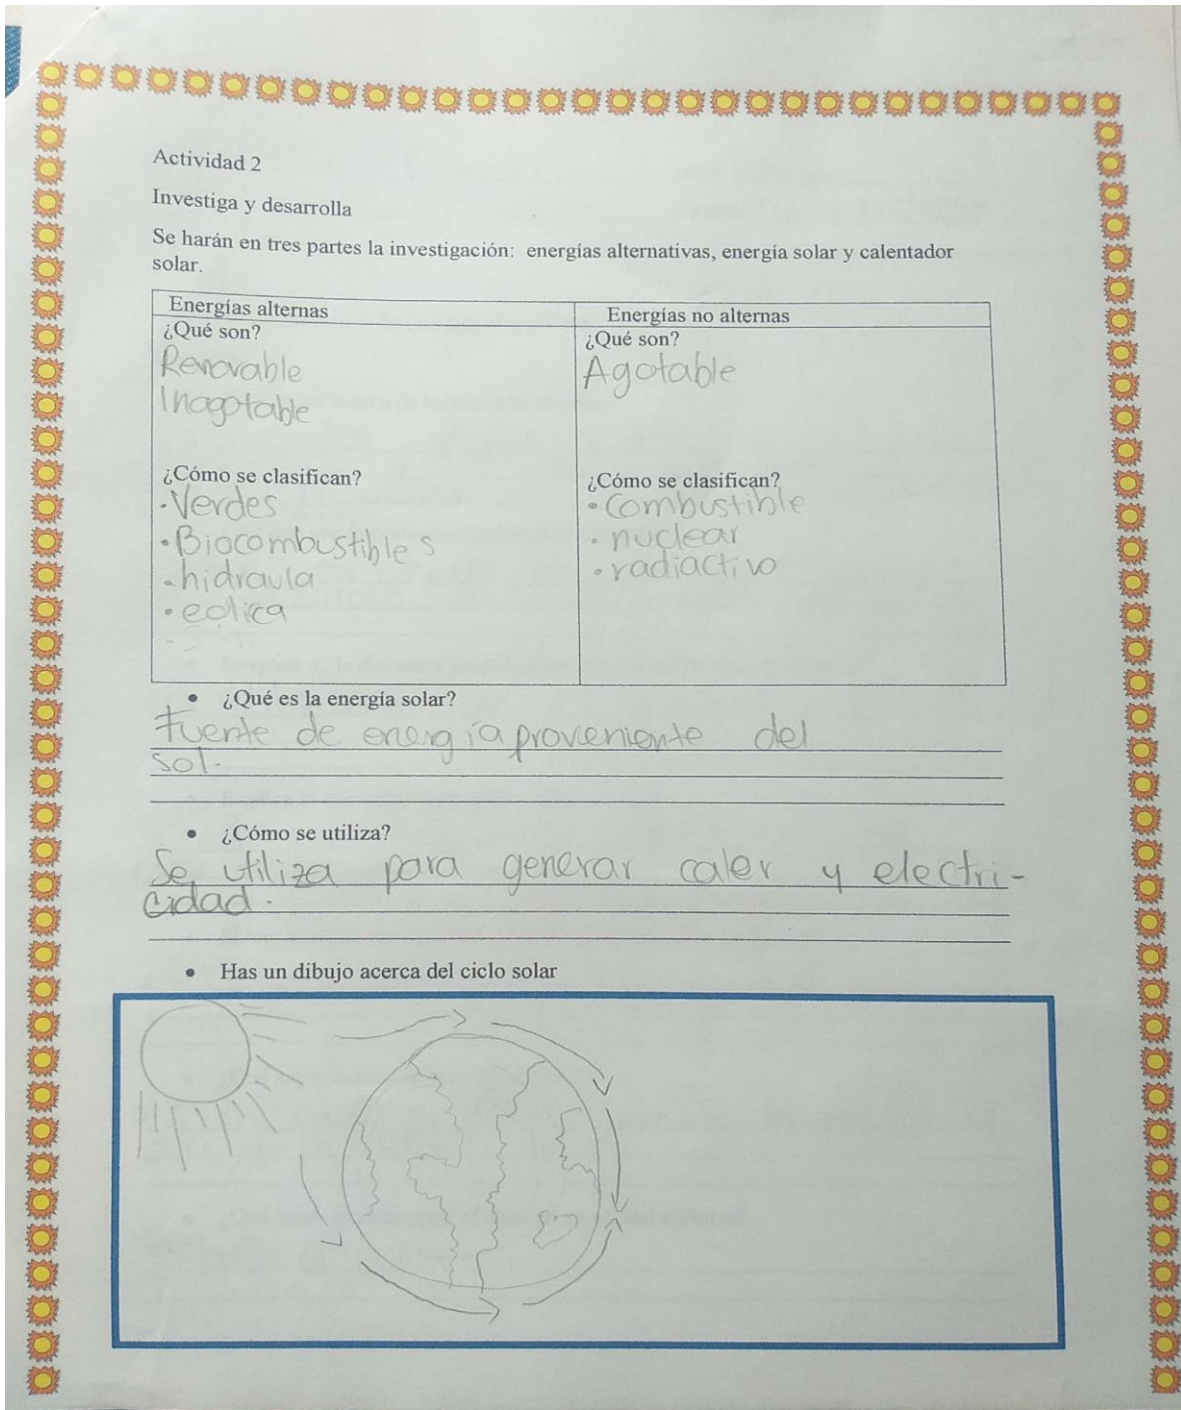 Actividad 2
Investiga y desarrolla
Se harán en tres partes la investigación: energías alternativas, energía solar y calentador
solar.
Energías alternas
¿Qué son?
Renovable
Inagotable
¿Cómo se clasifican?
·Verdes
·Biocombustibles
·hidraula
·eolica
Energías no alternas
¿Qué son?
Agotable
¿Cómo se clasifican?
·Combustible
·nuclear
·radiactivo
• ¿Qué es la energía solar?
Fuente de energía proveniente del
sol.
• ¿Cómo se utiliza?
Se utiliza para generar caler y electri-
cidad.
• Has un dibujo acerca del ciclo solar